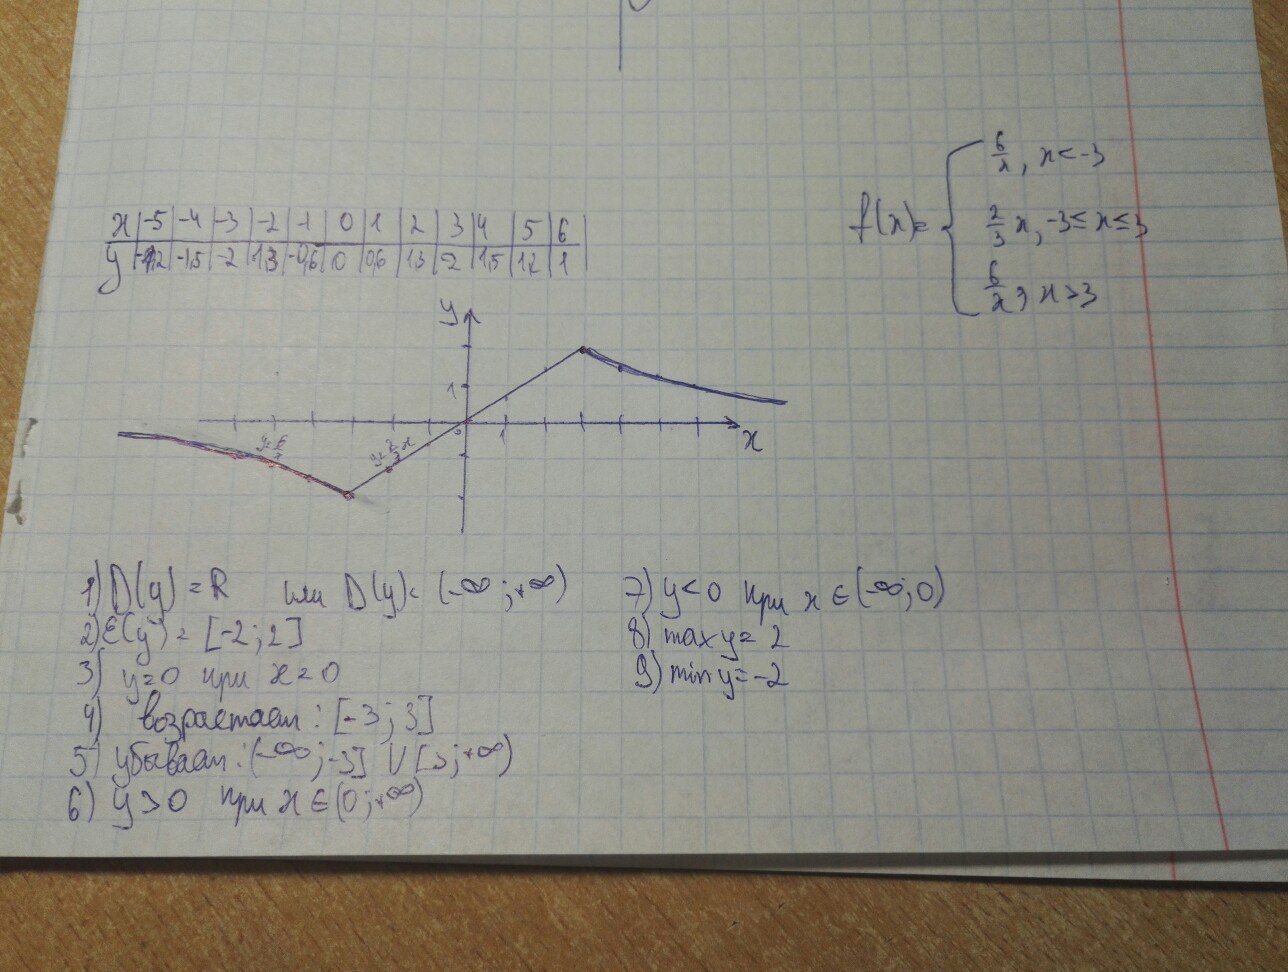 x -5 -4 -3 -2 -1 0 1 2 3 4 5 6
y -1,2 -1,5 -2 1,3 -0,6 0 0,6 1,3 2 1,5 1,2 1
f(x)=
6/x, x<-3
2/3 x, -3≤x≤3
6/x, x>3
y
1
y=6/x
y=2/3 x
0
1
x
1) D(y)=R или D(y)=(-∞;+∞)
2) E(y)=[-2;2]
3) y=0 при x=0
4) возрастает: [-3;3]
5) убывает: (-∞;-3] U [3;+∞)
6) y>0 при x∈(0;+∞)
7) y<0 при x∈(-∞;0)
8) max y= 2
9) min y=-2